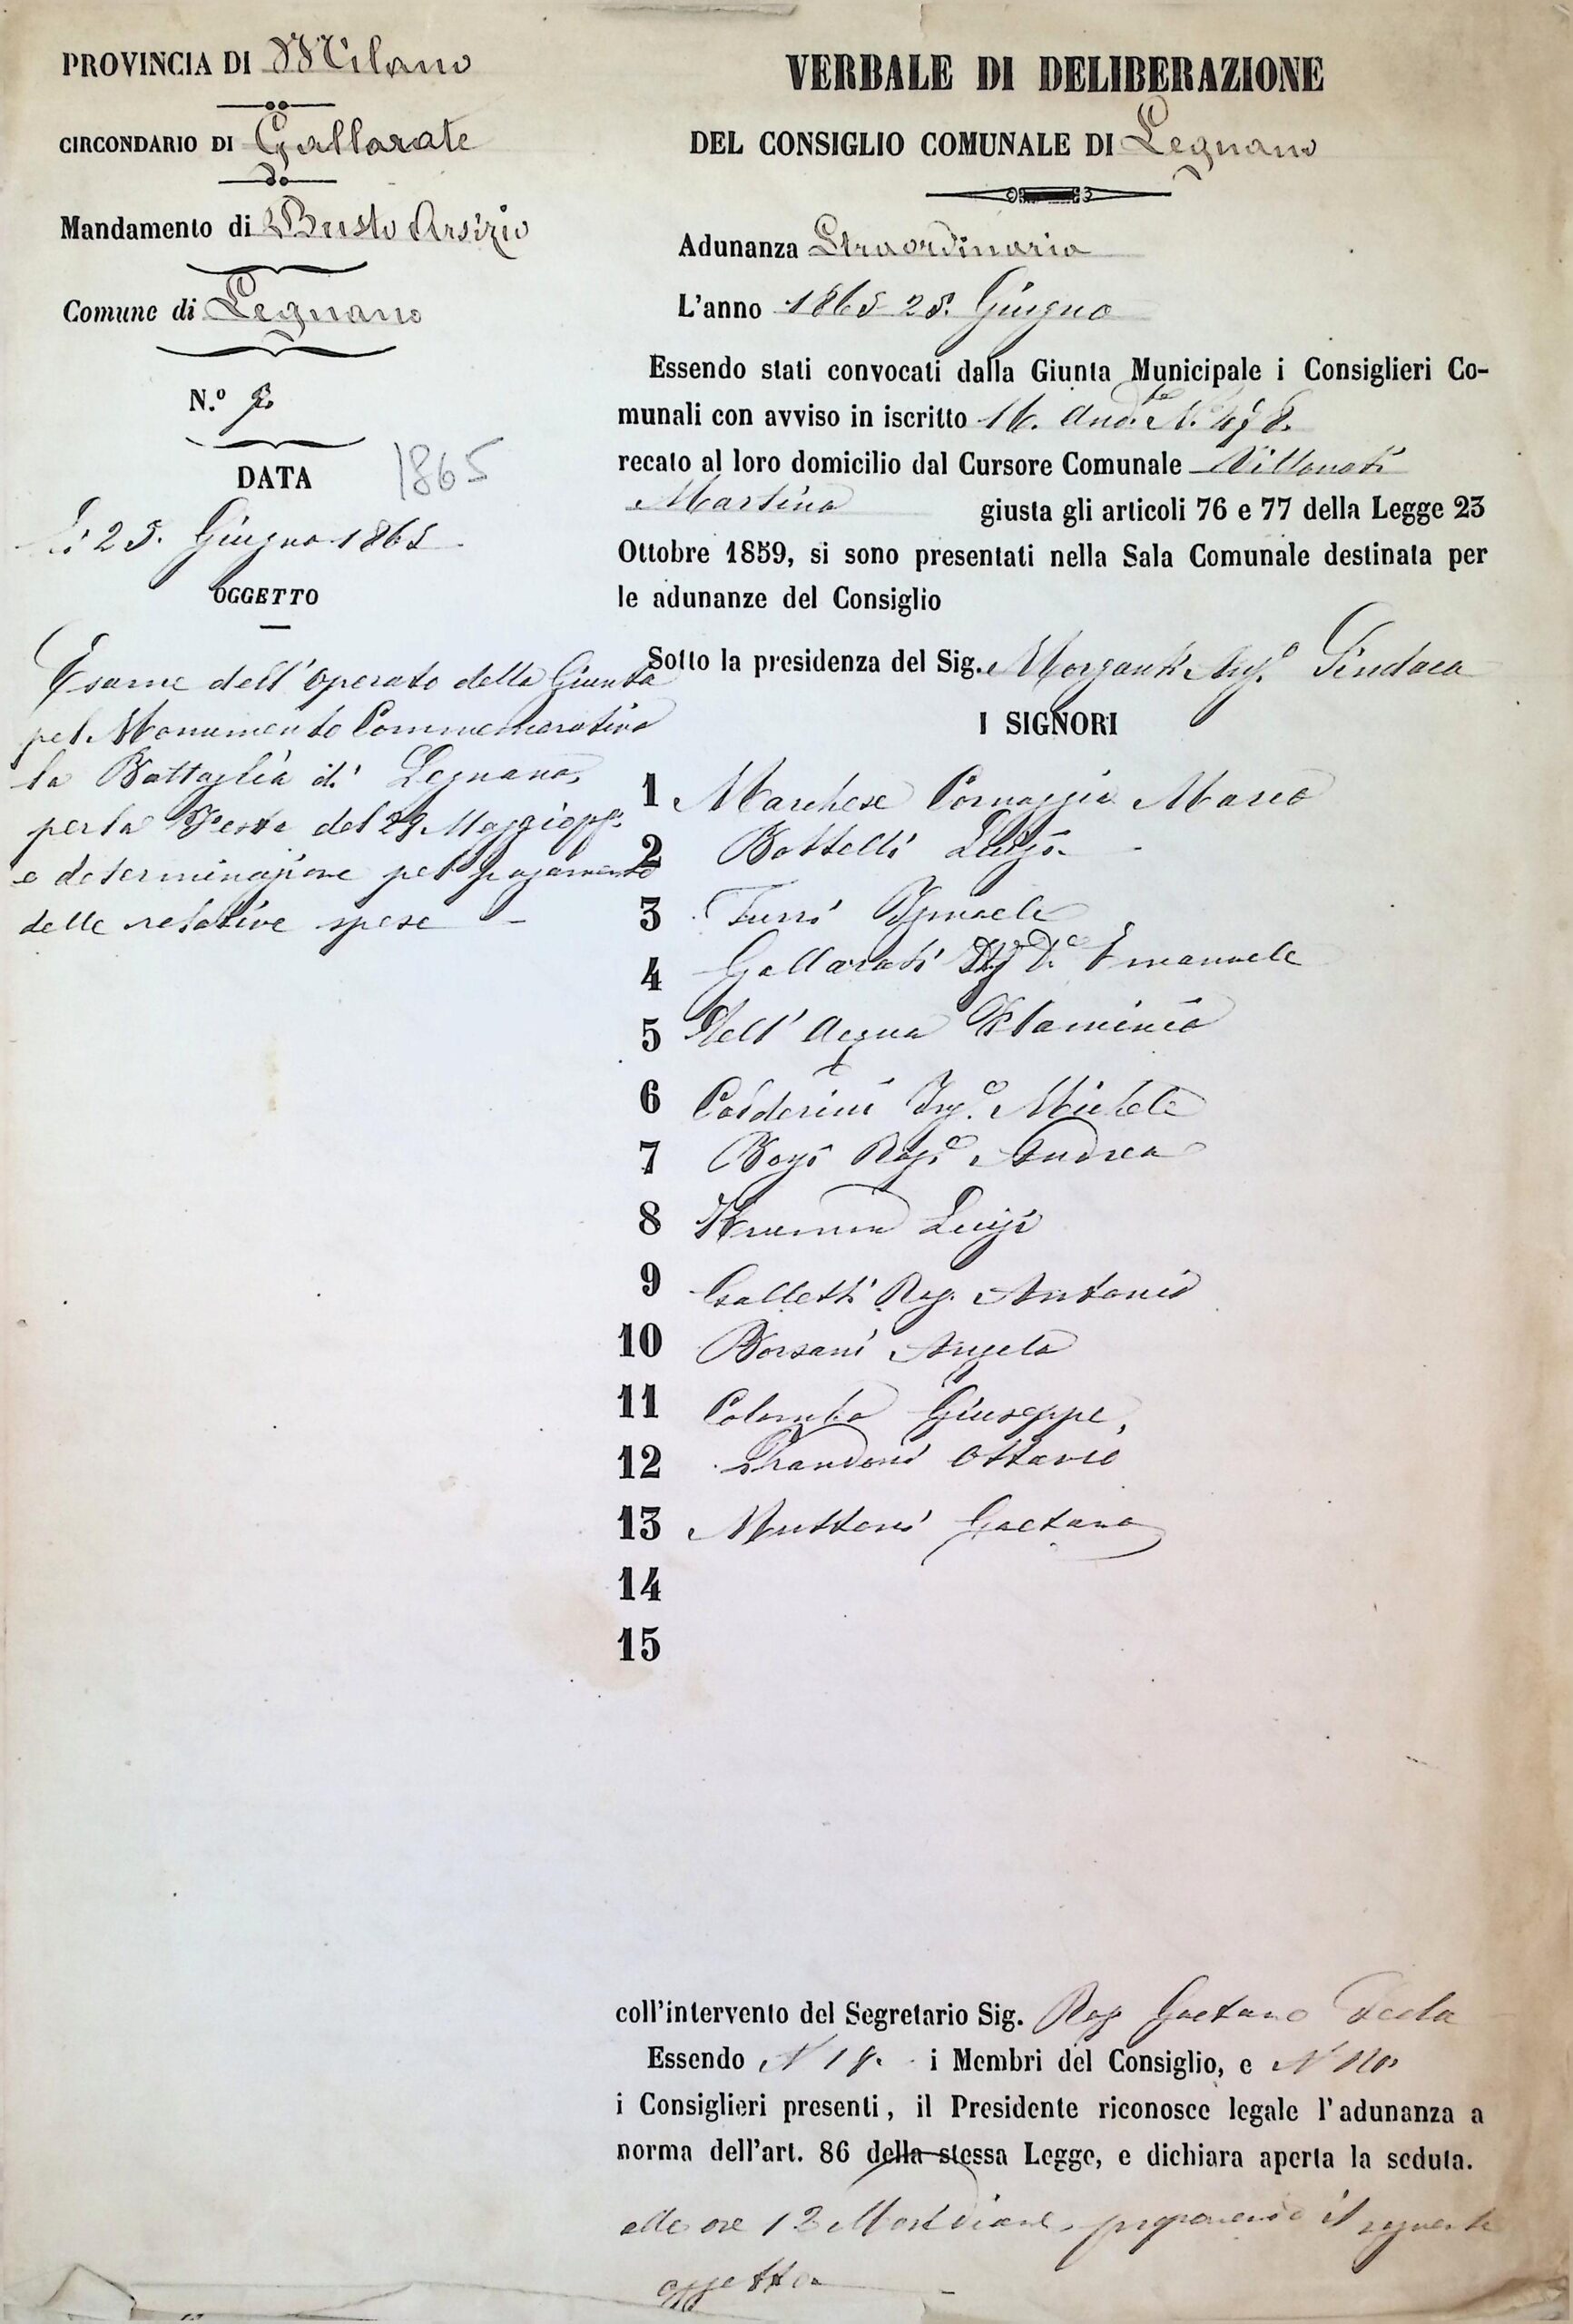 PROVINCIA DI Milano
CIRCONDARIO DI Gallarate
Mandamento di Busto Arsizio
Comune di Legnano
N.º
DATA
1865
Li 25. Giugno 1865
OGGETTO
Esame dell'operato della Giunta
pel Monumento Commemorativo
la Battaglia di Legnano,
per la Festa del 29 Maggio
e determinazione pel pagamento
delle relative spese
VERBALE DI DELIBERAZIONE
DEL CONSIGLIO COMUNALE DI Legnano
Adunanza Straordinaria
L'anno 1865 25. Giugno
Essendo stati convocati dalla Giunta Municipale i Consiglieri Co-
munali con avviso in iscritto 16. And.te N.
recato al loro domicilio dal Cursore Comunale
Martino giusta gli articoli 76 e 77 della Legge 23
Ottobre 1859, si sono presentati nella Sala Comunale destinata per
le adunanze del Consiglio
Sotto la presidenza del Sig. Morganti Ing.e Sindaco
I SIGNORI
1 Marchese Cornaggia Marco
2 Bottelli Luigi
3 Turri
4 Gallarati Emanuele
5 Dell'Acqua Flaminio
6 Ing.e Michele
7 Rag.e Andrea
8 Luigi
9 Galletti Rag. Antonio
10 Borsani Angelo
11 Colombo Giuseppe,
12 Ottavio
13 Muttoni Gaetano
14
15
coll'intervento del Segretario Sig. Rag Gaetano
Essendo N i Membri del Consiglio, e N
i Consiglieri presenti, il Presidente riconosce legale l'adunanza a
norma dell'art. 86 della stessa Legge, e dichiara aperta la seduta.
alle ore 12 Meridiane, proponendo il seguente
oggetto